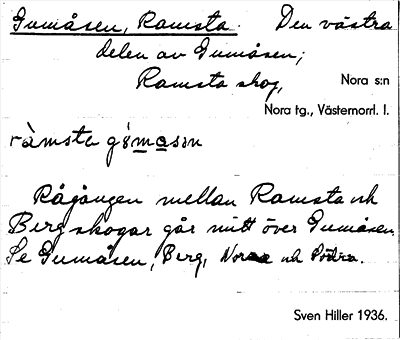 Gumåsen, Ramsta. Den västra
delen av Gumåsen;
Ramsta skog, Nora s:n
Nora tg., Västernorrl. l.
ràmsta
Rågången mellan Ramsta och
Berg skogar går mitt över Gumåsen.
Se Gumåsen, Berg, Norra och Södra.
Sven Hiller 1936.